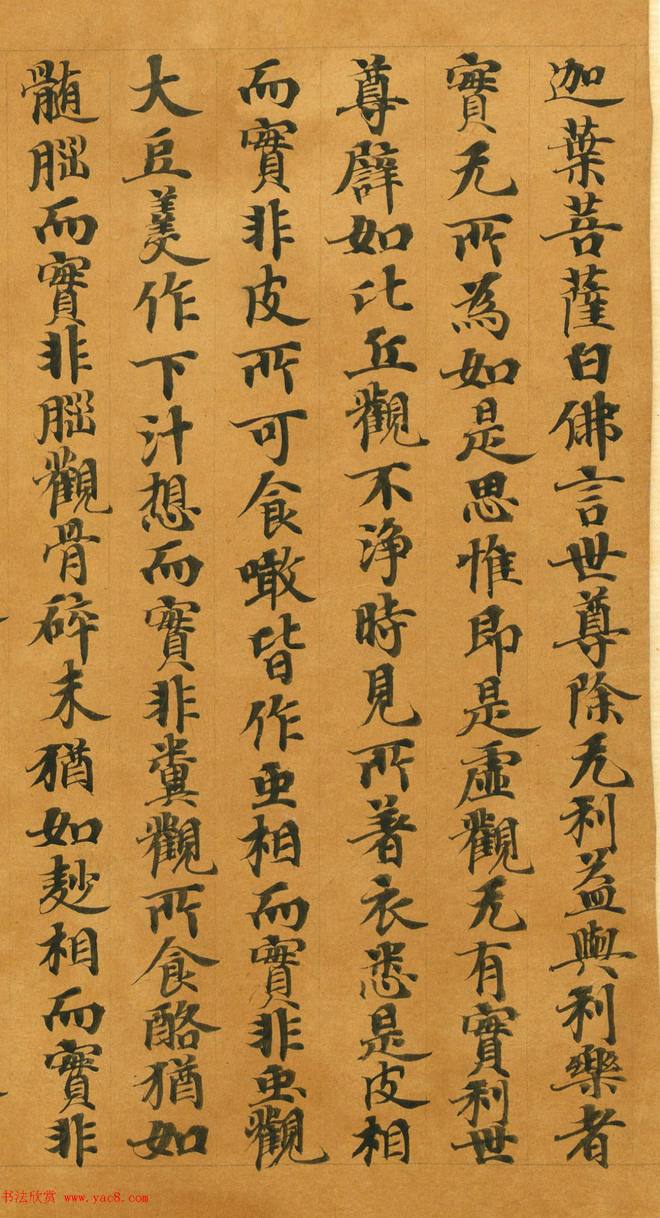 迦葉菩薩白佛言世尊除无利益與利樂者
實无所為如是思惟即是虛觀无有實利世
尊譬如比丘觀不淨時見所著衣悉是皮相
而實非皮所可食噉皆作虫相而實非虫觀
大豆羹作下汁想而實非糞觀所食酪猶如
髓腦而實非腦觀骨碎末猶如麨相而實非
书法欣赏 www.yac8.com